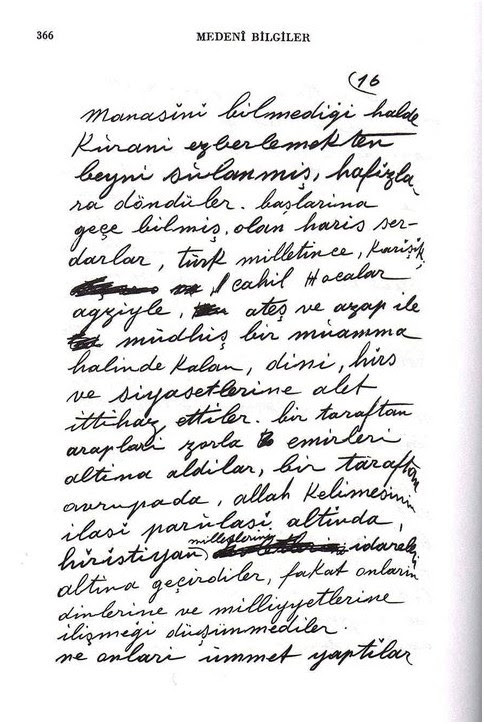 366
MEDENÎ BİLGİLER
(16
manasini bilmediği halde
Kùrani ezberlemekten
beyni sùlanmiş, hafizla
ra döndüler. başlarina
geçe bilmiş, olan haris ser-
darlar, türk milletince, Karişik,
cahil Hocalar
agziyle, ateş ve azap ile
müdhiş bir müamma
halinde Kalan, dini, hirs
ve siyasetlerine alet
ittihaz ettiler. bir taraftan
araplari zorla emirleri
altina aldilar, bir taraftan
avrupada, allah Kelimesinin
ilasi parùlasi altinda,
hiristiyan milletlerini idareleri
altina geçirdiler, fakat onlarin
dinlerine ve milliyyetlerine
ilişmeği düşünmediler.
ne onlari ümmet yaptilar